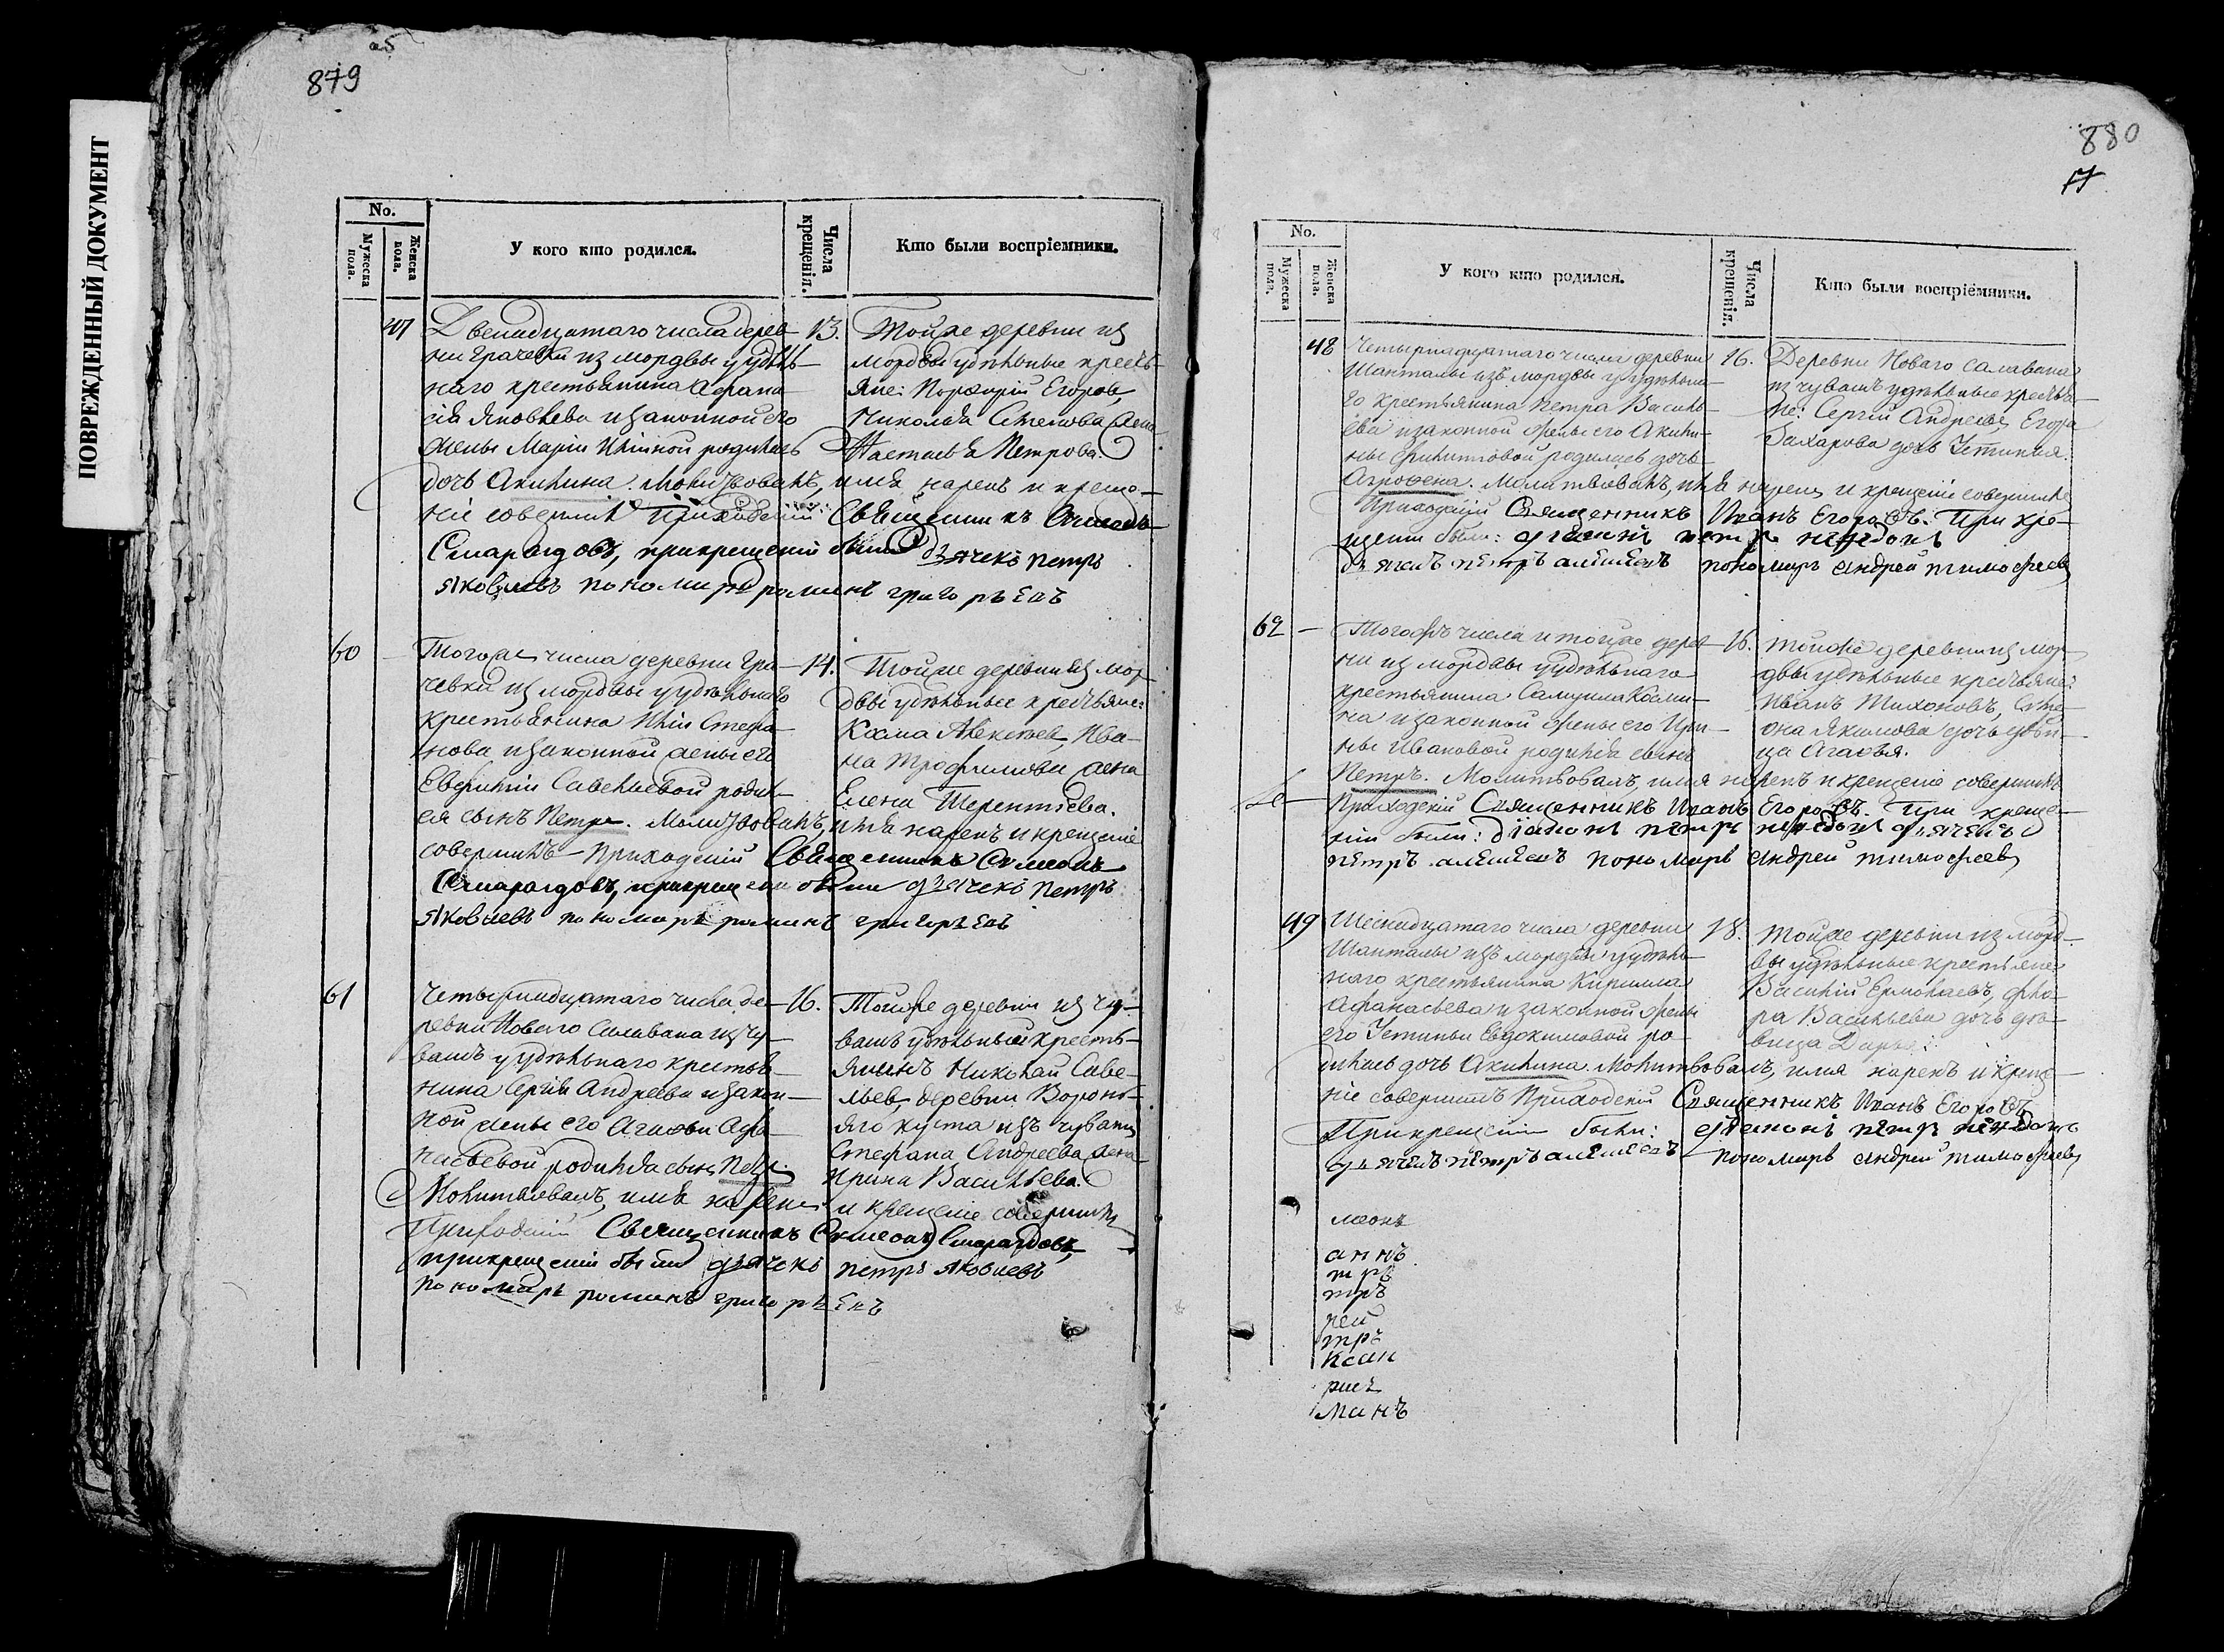 ПОВРЕЖДЕННЫЙ ДОКУМЕНТ
879
No.
Мужеска пола.
Женска пола.
У кого кто родился.
Числа крещенія.
Кто были воспріемники.
47
Двенадцатаго числа дерев-
ни Грачевки из мордвы у удѣль-
наго крестьянина Афана-
сія Яковлева и законной его
жены Маріи Ильиной родилась
дочь Акилина. Молитвовалъ, имя нарекъ и креще-
ніе совершилъ Приходскій Священникъ Симеонъ
Смарагдовъ, прикрещеніи были дьячекъ петръ
яковлевъ пономарь романъ григорьевъ
13.
Тойже деревни из
мордвы удѣльные кресть-
яне: Порфирій Егоровъ
Николая Степанова жена
Настасья Петрова.
60
Тогоже числа деревни Гра-
чевки из мордвы у удѣльнаго
крестьянина Ильи Стефа-
нова и законной жены его
Евфиміи Савельевой родил-
ся сынъ Петръ. Молитвовалъ, имя нарекъ и крещеніе
совершилъ Приходскій Священникъ Симеонъ
Смарагдовъ, прикрещеніи были дьячекъ петръ
яковлевъ пономарь романъ григорьевъ
14.
Тойже деревни из мор-
двы удѣльные крестьяне:
Козма Алексѣевъ, Ива-
на Трофимова жена
Елена Терентьева.
61
Четырнадцатаго числа де-
ревни Новаго Салавана из чу-
вашъ у удѣльнаго крестья-
нина Сергія Андреева и закон-
ной жены его Агафьи Афа-
насьевой родился сынъ Петръ.
Молитвовалъ, имя нарекъ и крещеніе совершилъ
Приходскій Священникъ Симеонъ Смарагдовъ,
прикрещеніи были дьячекъ петръ яковлевъ
пономарь романъ григорьевъ
16.
Тойже деревни из чу-
вашъ удѣльный кресть-
янинъ Николай Саве-
льев, деревни Воронь-
яго куста изъ чувашъ
Стефана Андреева жена
Ирина Васильева.
880
17
No.
Мужеска пола.
Женска пола.
У кого кто родился.
Числа крещенія.
Кто были воспріемники.
48
Четырнадцатаго числа деревни
Шанталы изъ мордвы у удѣльна-
го крестьянина Петра Василь-
ева и законной жены его Акили-
ны Филиповой родилась дочь
Агрофена. Молитвовалъ, имя нарекъ и крещеніе совершилъ
Приходскій Священникъ Иванъ Егоровъ. При кре-
щеніи были: дьяконъ петръ
дьячекъ петръ алексеевъ пономарь андрей тимофеевъ
16.
Деревни Новаго Салавана
из чувашъ удѣльные крестья-
не: Сергій Андреевъ, Егора
Захарова дочь Устинья.
62
Тогожъ числа и тойже дерев-
ни из мордвы у удѣльнаго
крестьянина Самуила Козми-
на и законной жены его Ири-
ны Ивановой родился сынъ
Петръ. Молитвовалъ, имя нарекъ и крещеніе совершилъ
Приходскій Священникъ Иванъ Егоровъ. При креще-
ніи были: дьяконъ петръ дьячекъ
петръ алексеевъ пономарь андрей тимофеевъ
16.
Тойже деревни из мор-
двы удѣльные крестьяне:
Иванъ Тихоновъ,
Якимова дочь дѣви-
ца Агафья.
49
Шеснадцатаго числа деревни
Шанталы изъ мордвы у удѣль-
наго крестьянина Кирилла
Афанасьева и законной жены
его Устиньи Евдокимовой ро-
дилась дочь Акилина. Молитвовалъ, имя нарекъ и креще-
ніе совершилъ Приходскій Священникъ Иванъ Егоровъ
Прикрещеніи были: дьяконъ петръ
дьячекъ петръ алексеевъ пономарь андрей тимофеевъ
18.
Тойже деревни из морд-
вы удѣльные крестьяне
Василій Ермолаевъ, Фло-
ра Васильева дочь дѣ-
вица Дарья.
меонъ
аннъ
тръ
тръ
рей
тръ
ксан
манъ